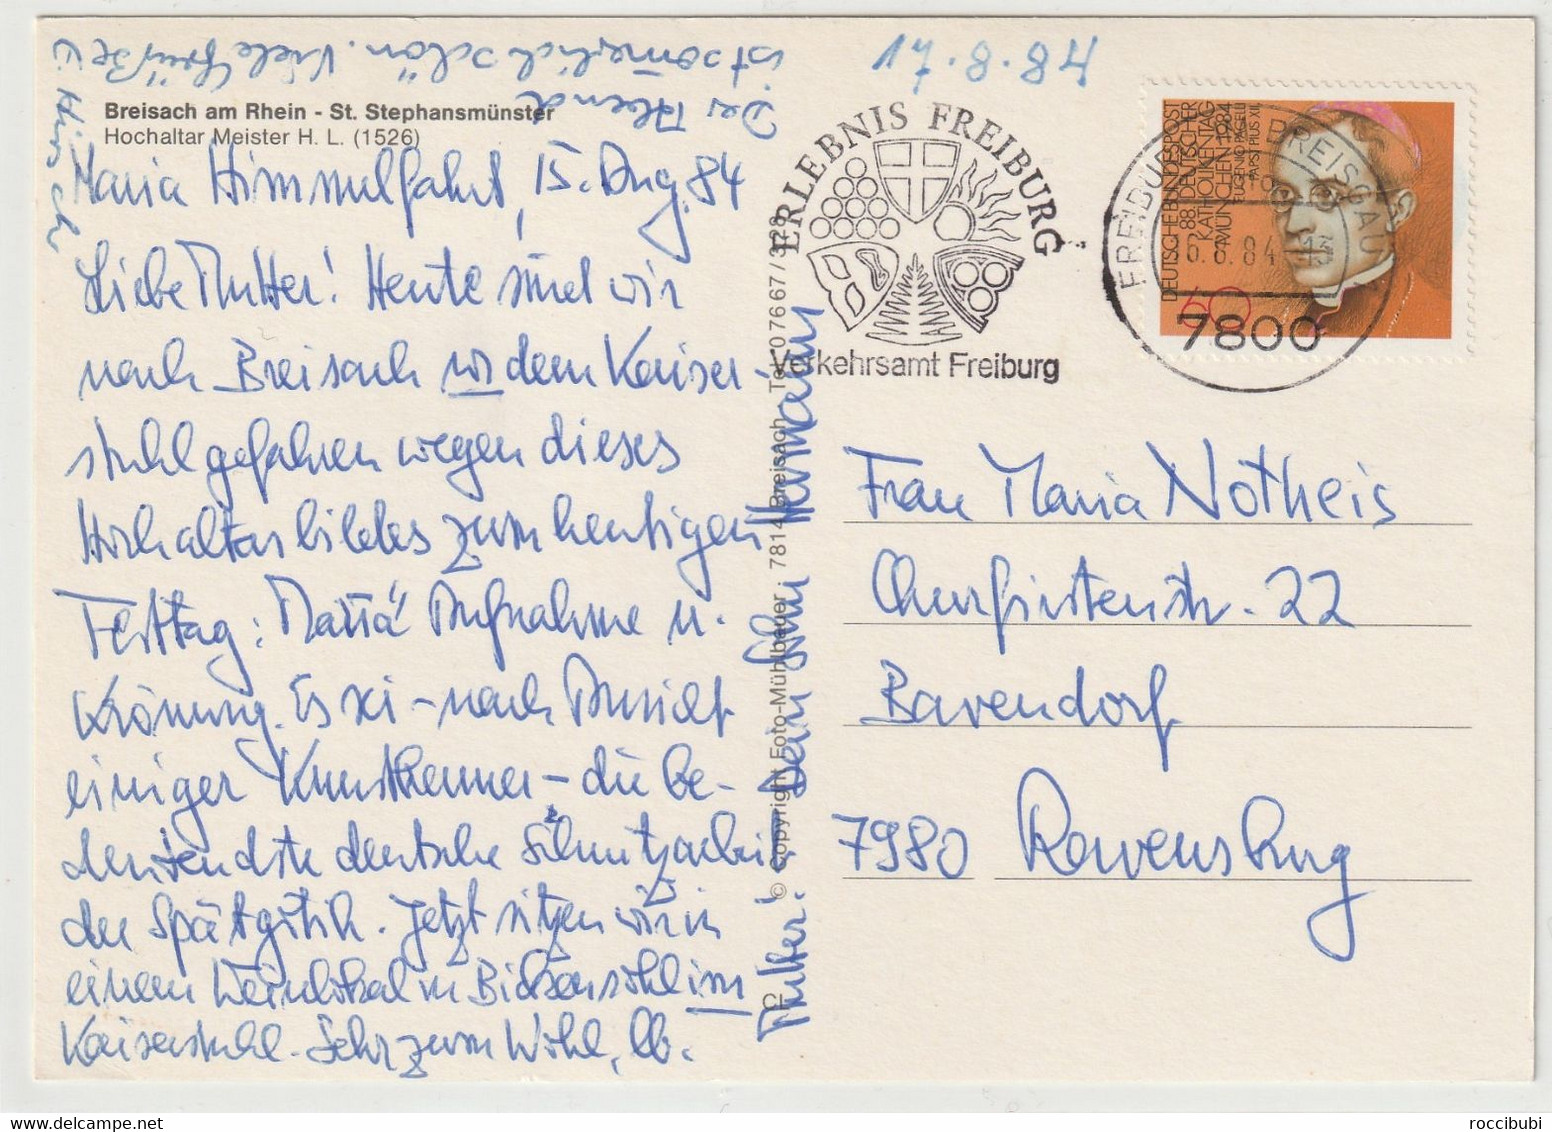 17.8.84
Breisach am Rhein - St. Stephansmünster
Hochaltar Meister H. L. (1526)
Maria Himmelfahrt, 15. Aug. 84
Liebe Mutter! Heute sind wir
nach Breisach vor dem Kaiser-
stuhl gefahren wegen dieses
Hochaltarbildes zum heutigen
Festtag: Mariä Aufnahme u.
Krönung. Es sei – nach Ansicht
einiger Kunstkenner – die be-
deutendste deutsche Schnitzarbeit
der Spätgotik. Jetzt sitzen wir in
einem Weinlokal in Bickensohl im
Kaiserstuhl. Sehr zum Wohl, lb.
Mutter! Dein Sohn Hermann
Der Abend
ist sommerlich schön. Viele Grüße
© Copyright Foto-Mühlbauer 7814 Breisach Tel. 07667/328
ERLEBNIS FREIBURG
Verkehrsamt Freiburg
FREIBURG BREISGAU
6.8.84-13
7800
DEUTSCHE BUNDESPOST
88. DEUTSCHER
KATHOLIKENTAG
MÜNCHEN 1984
EUGENIO PACELLI
PAPST PIUS XII.
60
Frau Maria Notheis
Churfürstenstr. 22
Bavendorf
7980 Ravensburg
roccibubi